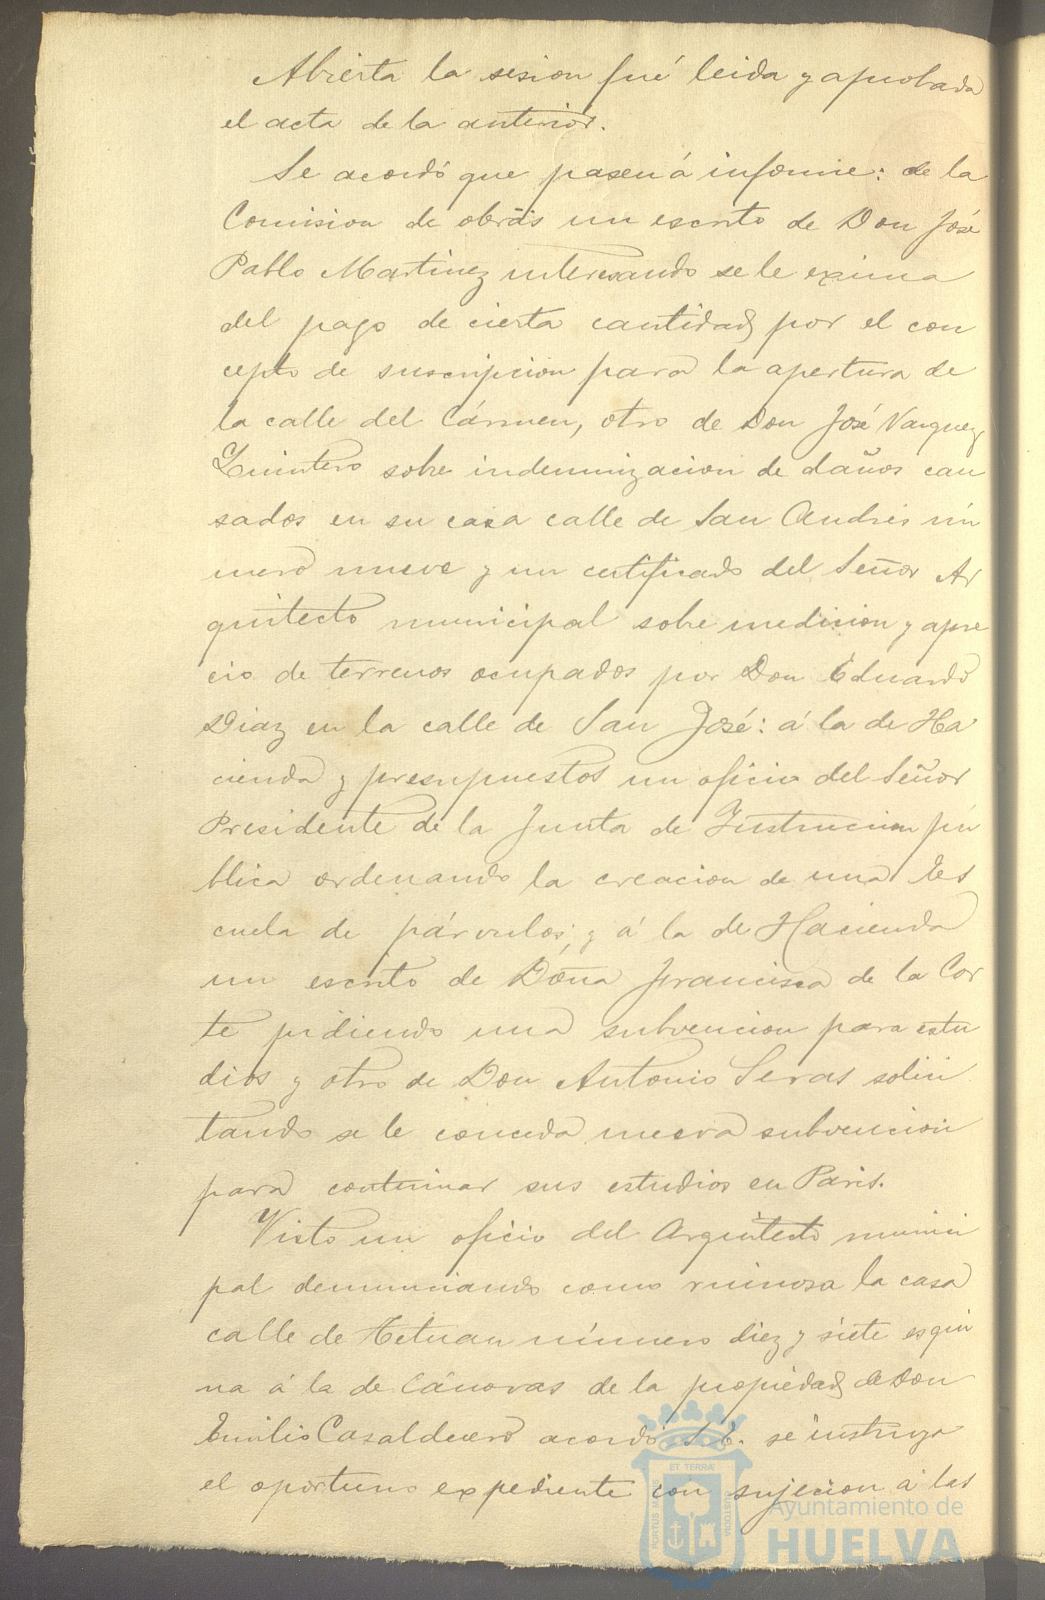 Abierta la sesion fué leida y aprobada
el acta de la anterior.
Se acordó que pasen á informe: de la
Comision de obras un escrito de Don José
Pablo Martinez interesando se le exima
del pago de cierta cantidad por el con
cepto de suscripcion para la apertura de
la calle del Cármen, otro de Don José Vazquez
Quintero sobre indemnizacion de daños cau
sados en su casa calle de San Andrés nú
mero nueve y un certificado del Señor Ar
quitecto municipal sobre medicion y apre
cio de terrenos ocupados por Don Eduardo
Diaz en la calle de San José: á la de Ha
cienda y presupuestos un oficio del Señor
Presidente de la Junta de Instruccion pú
blica ordenando la creacion de una Es
cuela de párvulos; y á la de Hacienda
un escrito de Doña Francisca de la Cor
te pidiendo una subvencion para estu
dios y otro de Don Antonio Seras solici
tando se le conceda nueva subvencion
para continuar sus estudios en Paris.
Visto un oficio del Arquitecto munici
pal denunciando como ruinosa la casa
calle de Tetuan número diez y siete esqui
na á la de Cánovas de la propiedad de Don
Emilio Casalduero acordó S.E. se instruya
el oportuno expediente con sujecion á las
ET TERRÆ
PORTUS MARIS
CUSTODIA
Ayuntamiento de
HUELVA